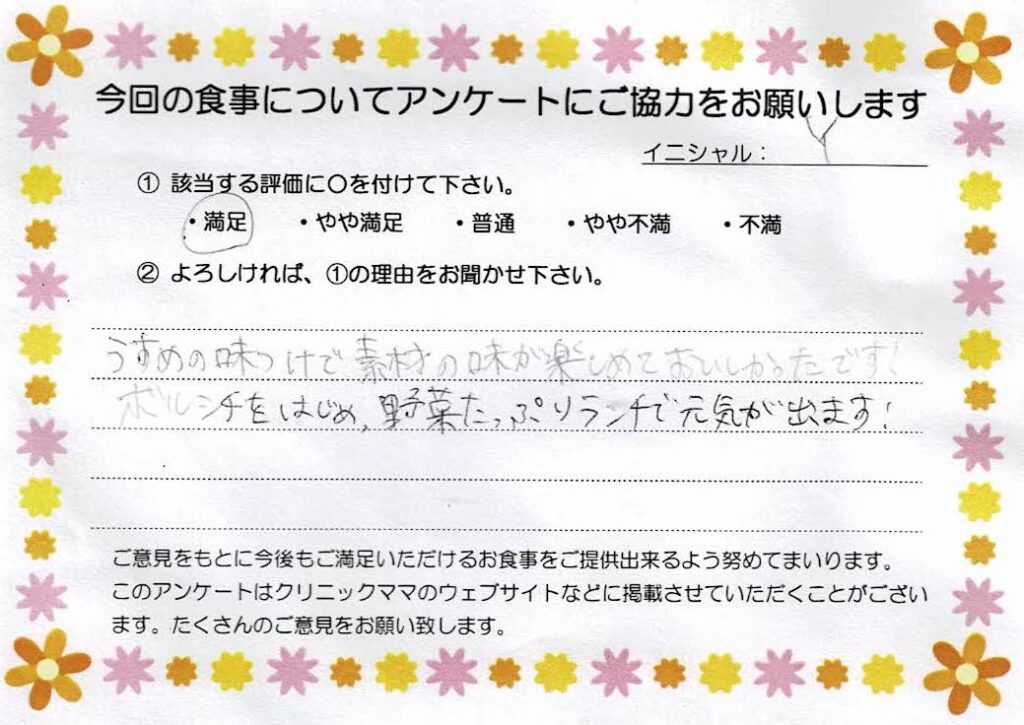 今回の食事についてアンケートにご協力をお願いします
イニシャル： Y
① 該当する評価に〇を付けて下さい。
・満足 ・やや満足 ・普通 ・やや不満 ・不満
② よろしければ、①の理由をお聞かせ下さい。
うすめの味つけで素材の味が楽しめておいしかったです！
ボルシチをはじめ、野菜たっぷりランチで元気が出ます！
ご意見をもとに今後もご満足いただけるお食事をご提供出来るよう努めてまいります。
このアンケートはクリニックママのウェブサイトなどに掲載させていただくことがござい
ます。たくさんのご意見をお願い致します。